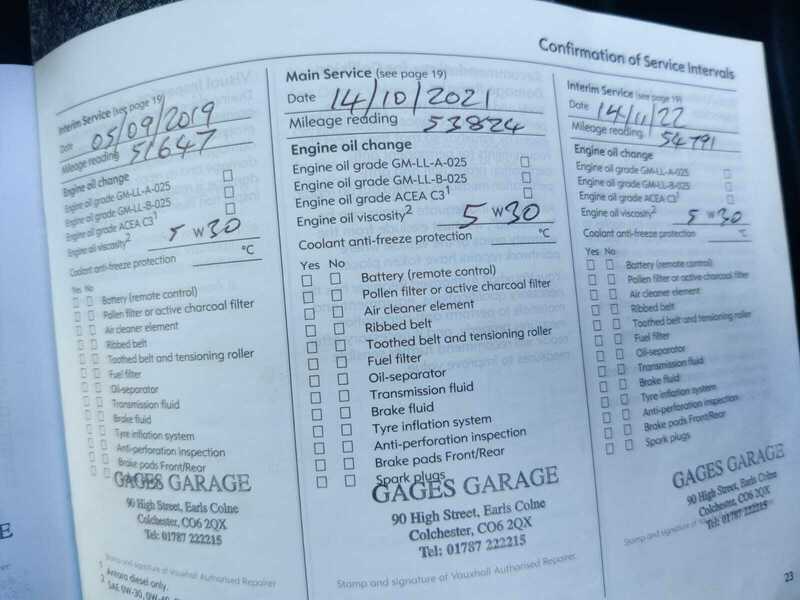 Confirmation of Service Intervals
Interim Service (see page 19)
Date 05/09/2019
Mileage reading 51647
Engine oil change
Engine oil grade GM-LL-A-025
Engine oil grade GM-LL-B-025
Engine oil grade ACEA C3¹
Engine oil viscosity² 5 W 30
Coolant anti-freeze protection °C
Yes No
Battery (remote control)
Pollen filter or active charcoal filter
Air cleaner element
Ribbed belt
Toothed belt and tensioning roller
Fuel filter
Oil-separator
Transmission fluid
Brake fluid
Tyre inflation system
Anti-perforation inspection
Brake pads Front/Rear
GAGES GARAGE
90 High Street, Earls Colne
Colchester, CO6 2QX
Tel: 01787 222215
Stamp and signature of Vauxhall Authorised Repairer
1 Antara diesel only.
2 SAE 0W-30, 0W-40,
Main Service (see page 19)
Date 14/10/2021
Mileage reading 53824
Engine oil change
Engine oil grade GM-LL-A-025
Engine oil grade GM-LL-B-025
Engine oil grade ACEA C3¹
Engine oil viscosity² 5 W 30
Coolant anti-freeze protection °C
Yes No
Battery (remote control)
Pollen filter or active charcoal filter
Air cleaner element
Ribbed belt
Toothed belt and tensioning roller
Fuel filter
Oil-separator
Transmission fluid
Brake fluid
Tyre inflation system
Anti-perforation inspection
Brake pads Front/Rear
Spark plugs
GAGES GARAGE
90 High Street, Earls Colne
Colchester, CO6 2QX
Tel: 01787 222215
Stamp and signature of Vauxhall Authorised Repairer.
Interim Service (see page 19)
Date 14/11/22
Mileage reading 54791
Engine oil change
Engine oil grade GM-LL-A-025
Engine oil grade GM-LL-B-025
Engine oil grade ACEA C3¹
Engine oil viscosity² 5 W 30
Coolant anti-freeze protection °C
Yes No
Battery (remote control)
Pollen filter or active charcoal filter
Air cleaner element
Ribbed belt
Toothed belt and tensioning roller
Fuel filter
Oil-separator
Transmission fluid
Brake fluid
Tyre inflation system
Anti-perforation inspection
Brake pads Front/Rear
Spark plugs
GAGES GARAGE
90 High Street, Earls Colne
Colchester, CO6 2QX
Tel: 01787 222215
Stamp and signature of
23